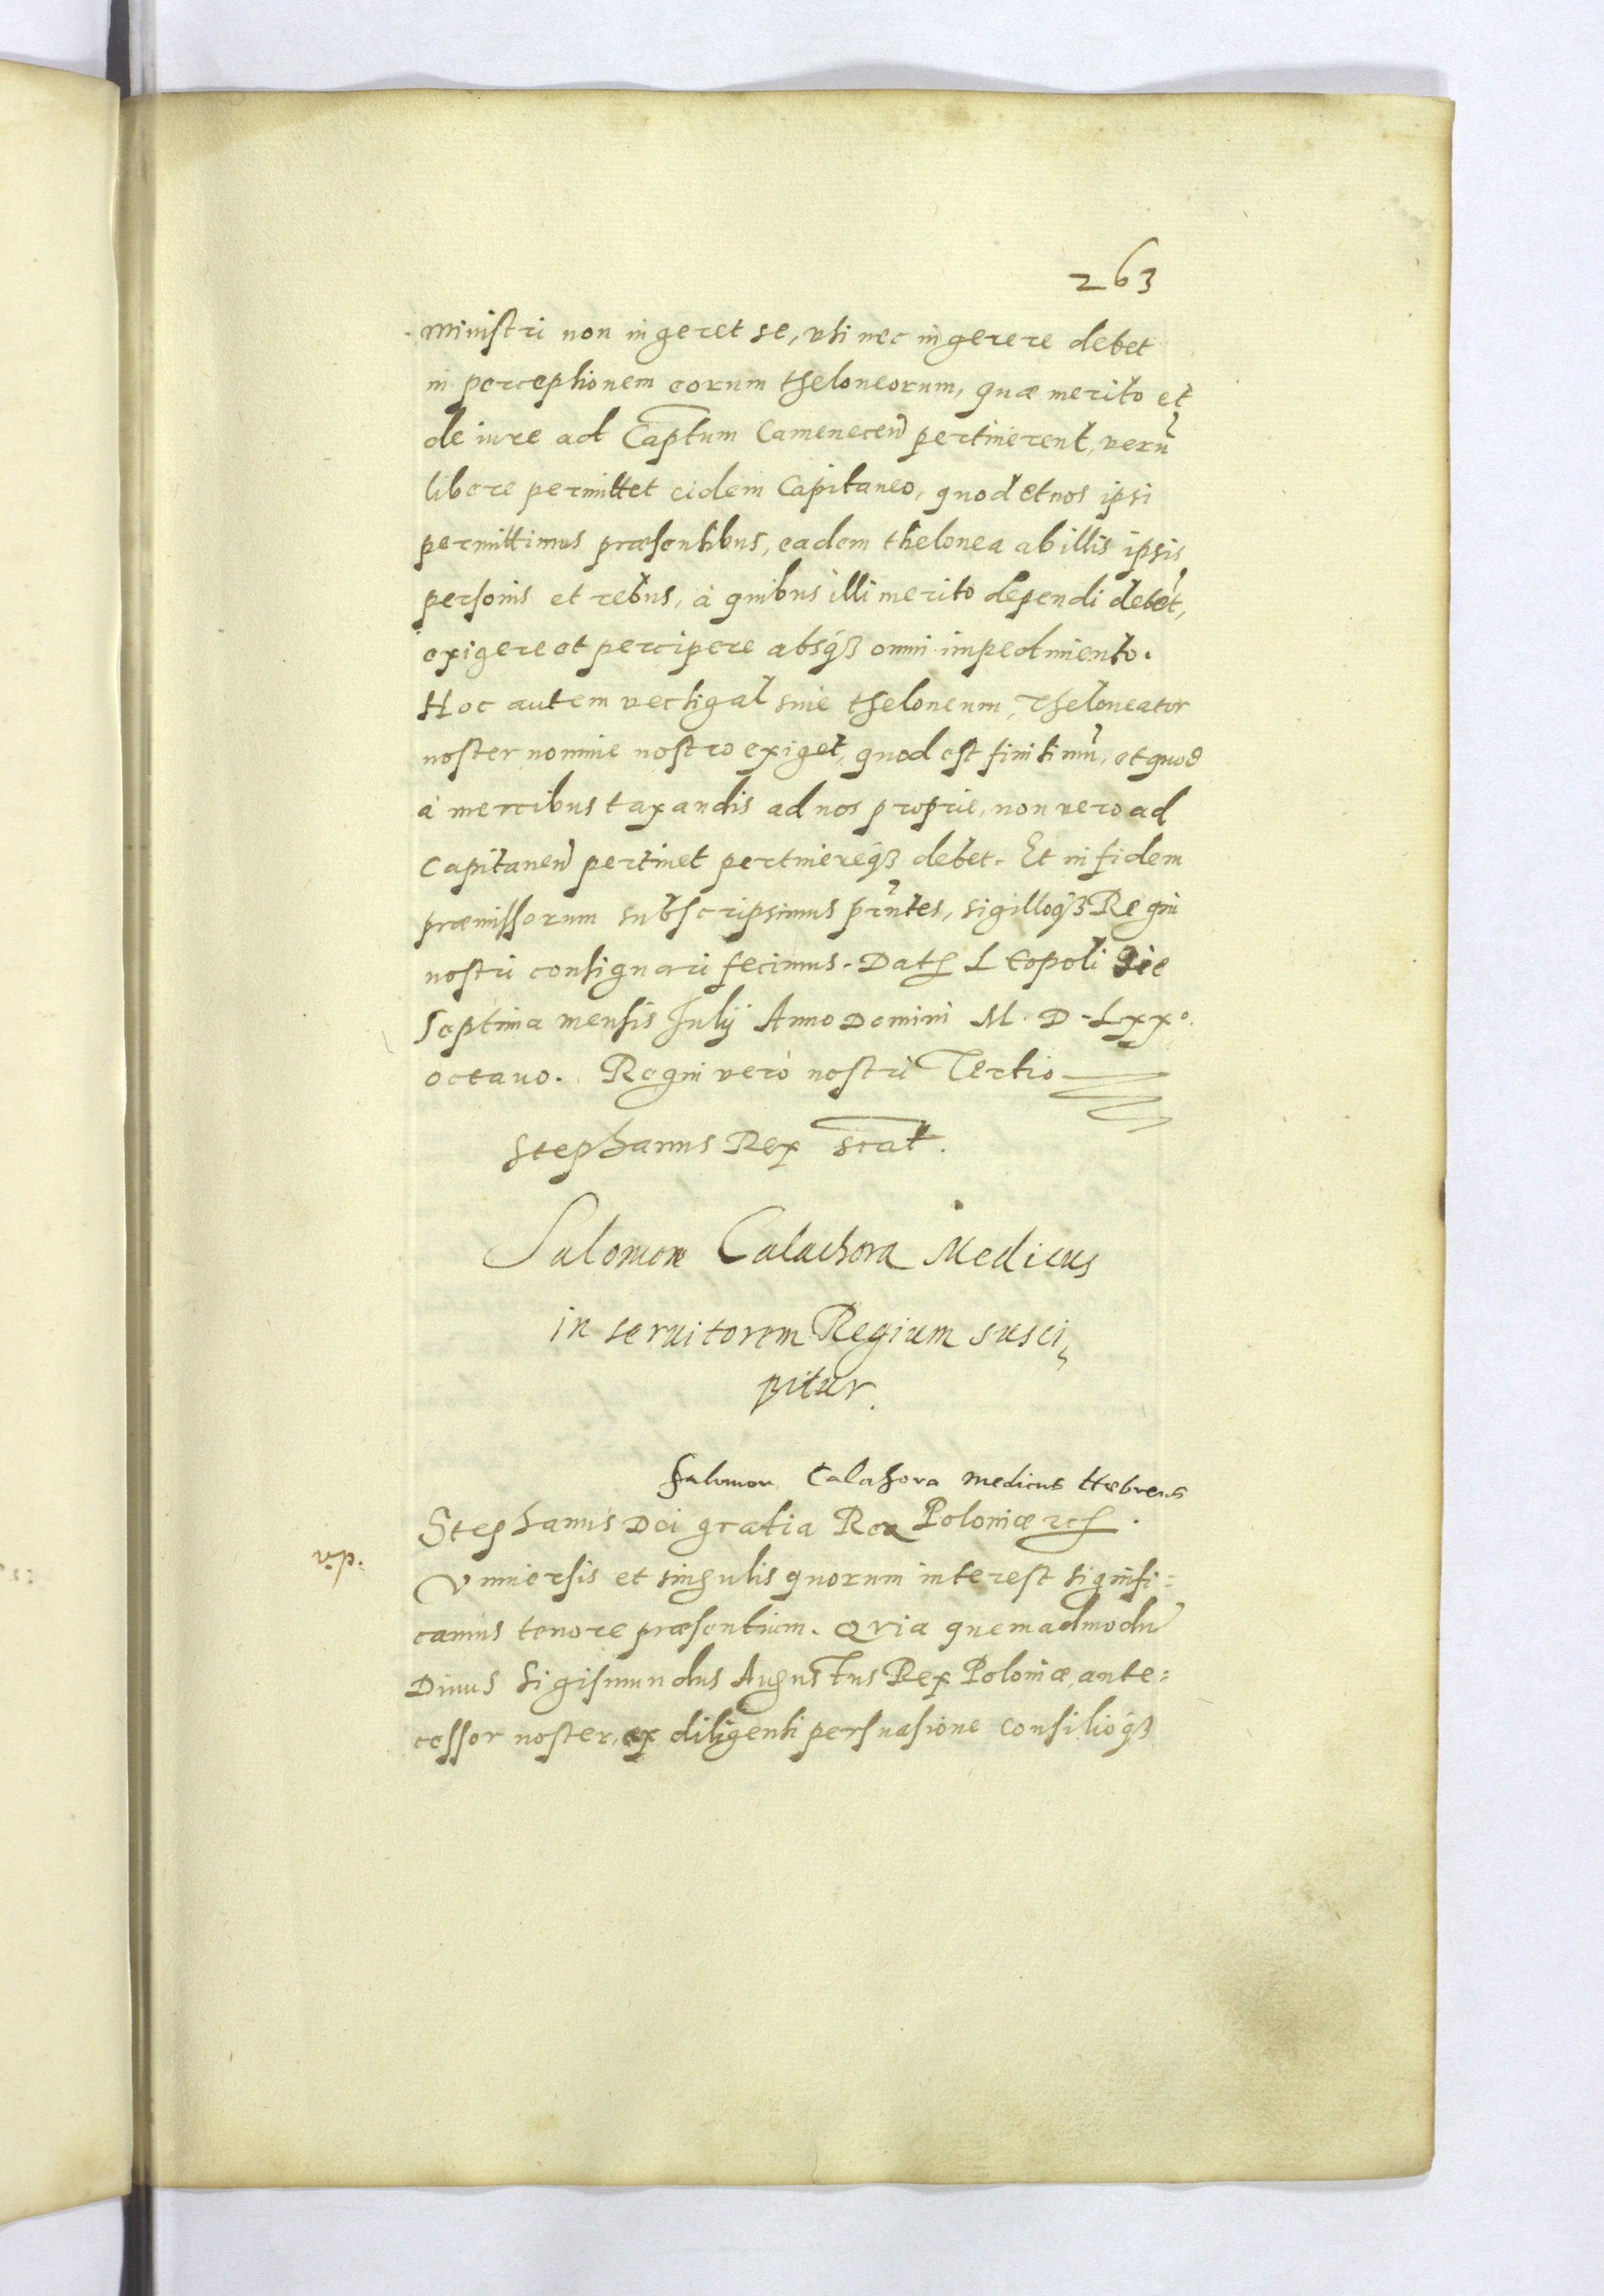 263
ministri non ingeret se, vti nec ingerere debet
in perceptionem eorum theloneorum, quæ merito et
de iure ad Captum Camenecen̄ pertinerent, verū
libere permittet eidem Capitaneo, quod et nos ipsi
permittimus præsentibus, eadem thelonea ab illis ipsis
personis et rebus, à quibus illi merito dependi debēt,
exigere et percipere absq3 omni impedimento.
Hoc autem vectigal siue theloneum, Theloneator
noster nomine nostro exiget, quod est finitimū, et quod
à mercibus taxandis ad nos proprie, non vero ad
Capitaneū pertinet pertinereq3 debet. Et in fidem
præmissorum subscripsimus prn̄tes, sigilloq3 Regni
nostri consignari fecimus. Dat. Leopoli die
Septima mensis Julij Anno Domini M. D. Lxxº.
octauo. Regni verò nostri Tertio
Stephanus Rex scat.
Salomon Calachora Medicus
in seruitorem Regium susci,
pitur.
Salomon Calahora medicus Hebreus
Stephanus Dei gratia Rex Poloniæ etc.
v.p.
Vniuersis et singulis quorum interest signifi=
camus tenore præsentium. Qvia quemadmodū
Diuus Sigismundus Augustus Rex Poloniæ, ante=
cessor noster, ex diligenti persuasione consilioq3